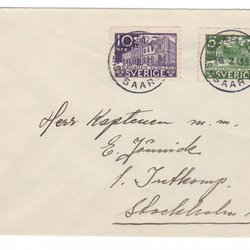 10 ÖRE
SVERIGE
5
SVERIGE
SAAR
Herr Kaptenen m. m.
E.
1. Intkomp.
Stockholm